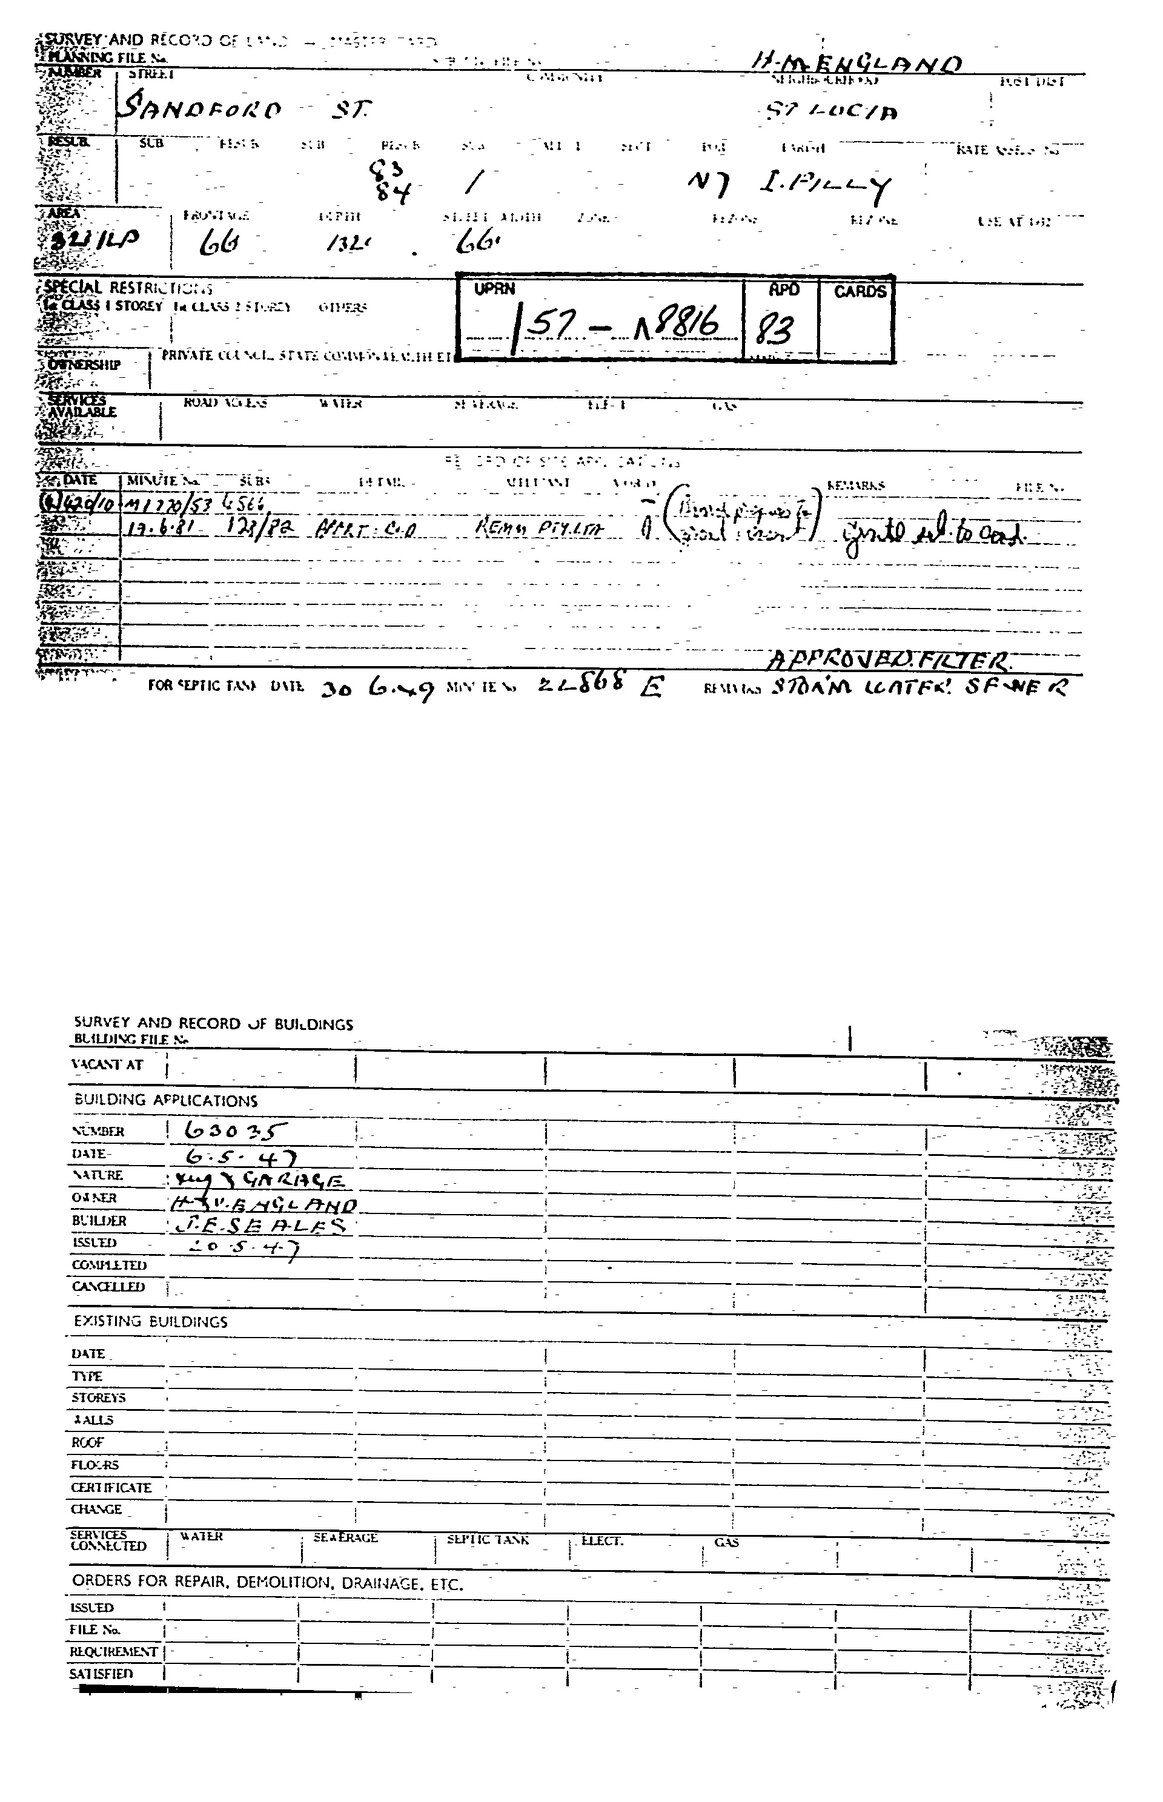 SURVEY AND RECORD OF LAND — MASTER CARD
PLANNING FILE No. H.M.ENGLAND
NUMBER STREET COMMUNITY NEIGHBOURHOOD POST DIST
SANDFORD ST. ST LUCIA
RESUB. SUB RESUB SUB RESUB SUB ALLT SECT POR PARISH RATE ASSESS No
83
84 1 N7 I.PILLY
AREA FRONTAGE DEPTH STREET WIDTH ZONE REZONE REZONE USE AT
66 132' 66'
SPECIAL RESTRICTIONS
1a CLASS 1 STOREY 1a CLASS 2 STOREY OTHERS
UPRN RPD CARDS
157 - 8816 83
OWNERSHIP PRIVATE COUNCIL, STATE COMMONWEALTH ET
SERVICES AVAILABLE ROAD ACCESS WATER SEWERAGE ELECT GAS
RECORD OF SITE APPLICATIONS
DATE MINUTE No. SUBS DETAIL APPLICANT REMARKS FILE No
M1770/53 4566
19.6.81 123/82 REMM PTY.LTD to card.
APPROVED.FILTER.
FOR SEPTIC TANK DATE 30 6.49 MINUTE No 22868 E REMARKS STORM WATER SEWER
SURVEY AND RECORD OF BUILDINGS
BUILDING FILE No
VACANT AT
BUILDING APPLICATIONS
NUMBER 63035
DATE 6.5.47
NATURE GARAGE
OWNER ENGLAND
BUILDER J.E.SEALES
ISSUED 20.5.47
COMPLETED
CANCELLED
EXISTING BUILDINGS
DATE
TYPE
STOREYS
WALLS
ROOF
FLOORS
CERTIFICATE
CHANGE
SERVICES CONNECTED WATER SEWERAGE SEPTIC TANK ELECT. GAS
ORDERS FOR REPAIR, DEMOLITION, DRAINAGE, ETC.
ISSUED
FILE No.
REQUIREMENT
SATISFIED